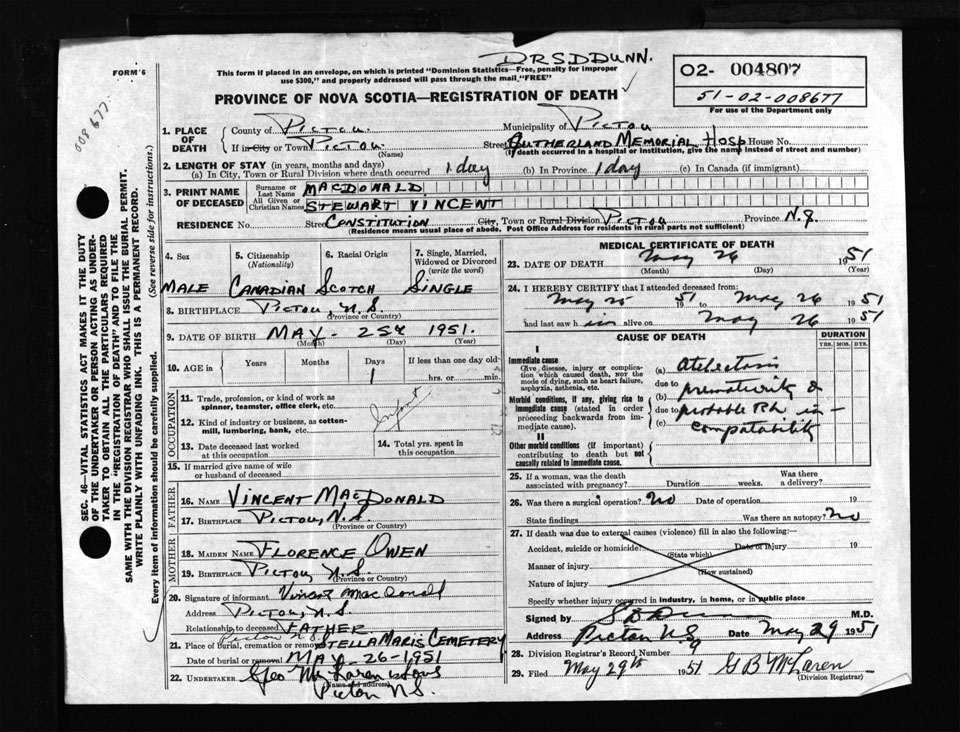 DR S D DUNN.
FORM 6
This form if placed in an envelope, on which is printed "Dominion Statistics—Free, penalty for improper
use $300," and properly addressed will pass through the mail "FREE"
O2- 004807
51-02-008677
For use of the Department only
008677
PROVINCE OF NOVA SCOTIA—REGISTRATION OF DEATH
SEC. 46—VITAL STATISTICS ACT MAKES IT THE DUTY
OF THE UNDERTAKER OR PERSON ACTING AS UNDER-
TAKER TO OBTAIN ALL THE PARTICULARS REQUIRED
IN THE "REGISTRATION OF DEATH" AND TO FILE THE
SAME WITH THE DIVISION REGISTRAR WHO SHALL ISSUE THE BURIAL PERMIT.
WRITE PLAINLY WITH UNFADING INK. THIS IS A PERMANENT RECORD.
(See reverse side for instructions.)
Every item of information should be carefully supplied.
1. PLACE OF DEATH
County of Pictou. Municipality of Pictou
If in City or Town Pictou. Street Sutherland Memorial Hosp House No.
(Name) (If death occurred in a hospital or institution, give the name instead of street and number)
2. LENGTH OF STAY (in years, months and days)
(a) In City, Town or Rural Division where death occurred 1 day (b) In Province 1 day (c) In Canada (if immigrant)
3. PRINT NAME OF DECEASED
Surname or Last Name MACDONALD
All Given or Christian Names STEWART VINCENT
RESIDENCE No. Street Constitution City, Town or Rural Division Pictou Province N.S.
(Residence means usual place of abode. Post Office Address for residents in rural parts not sufficient)
4. Sex 5. Citizenship (Nationality) 6. Racial Origin 7. Single, Married, Widowed or Divorced (write the word)
Male Canadian Scotch Single
8. BIRTHPLACE Pictou N.S.
(Province or Country)
9. DATE OF BIRTH May - 25th 1951.
(Month) (Day) (Year)
10. AGE in Years Months Days If less than one day old
1 hrs. or min.
OCCUPATION
11. Trade, profession, or kind of work as
spinner, teamster, office clerk, etc.
12. Kind of industry or business, as cotton-
mill, lumbering, bank, etc.
Infant
13. Date deceased last worked
at this occupation
14. Total yrs. spent in
this occupation
15. If married give name of wife
or husband of deceased
FATHER
16. Name Vincent MacDonald
17. Birthplace Pictou, N.S.
(Province or Country)
MOTHER
18. Maiden Name Florence Owen
19. Birthplace Pictou, N.S.
(Province or Country)
20. Signature of informant Vincent MacDonald
Address Pictou, N.S.
Relationship to deceased Father
Pictou N.S.
21. Place of burial, cremation or removal Stella Maris Cemetery
Date of burial or removal May - 26 - 1951
22. Undertaker Geo McLaren & Sons
(Name and address)
Pictou N.S.
MEDICAL CERTIFICATE OF DEATH
23. DATE OF DEATH May 26 1951
(Month) (Day) (Year)
24. I HEREBY CERTIFY that I attended deceased from:
May 25 1951 to May 26 1951
and last saw him alive on May 26 1951
CAUSE OF DEATH
DURATION
YRS. MOS. DYS.
I
Immediate cause
(Give disease, injury or complica-
tion which caused death, NOT the
mode of dying, such as heart failure,
asphyxia, asthenia, etc.
(a) Atelectasis
due to
Morbid conditions, if any, giving rise to
immediate cause (stated in order
proceeding backwards from im-
mediate cause).
(b) prematurity &
due to probable Rh. in-
(c) compatability
II
Other morbid conditions (if important)
contributing to death but not
causally related to immediate cause.
25. If a woman, was the death
associated with pregnancy? Duration weeks. Was there a delivery?
26. Was there a surgical operation? No Date of operation 19
State findings Was there an autopsy? No
27. If death was due to external causes (violence) fill in also the following:—
Accident, suicide or homicide? Date of injury 19
(State which)
Manner of injury
(How sustained)
Nature of injury
Specify whether injury occurred in industry, in home, or in public place
Signed by M.D.
Address Pictou N.S. Date May 29 1951
28. Division Registrar's Record Number 9
29. Filed May 29th 1951 G B McLaren
(Division Registrar)